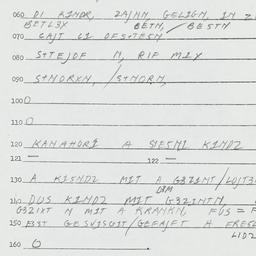 060 DI KINDR, ZAJNN GELIGN, IN Z
BETL3X BETN, / BESTN
070 CAJT CI OFSTEEN
080 S+TEJOF N, RIF MIX
090 S+NORXN, /S+NORN,
100 O
110 O
120 KANAHORI A SIESNI KINDZ
121 — 122 —
130 A KISNDZ MIT A G3ZINT/LUJT3
DEM
140 DUS KINDZ MIT G3ZINTN,
G3ZIXT N MIT A KRANKN, FUS = F
150 E3ST GESVISUIT/GEFAJFT A FRES
LIDZ
160 O